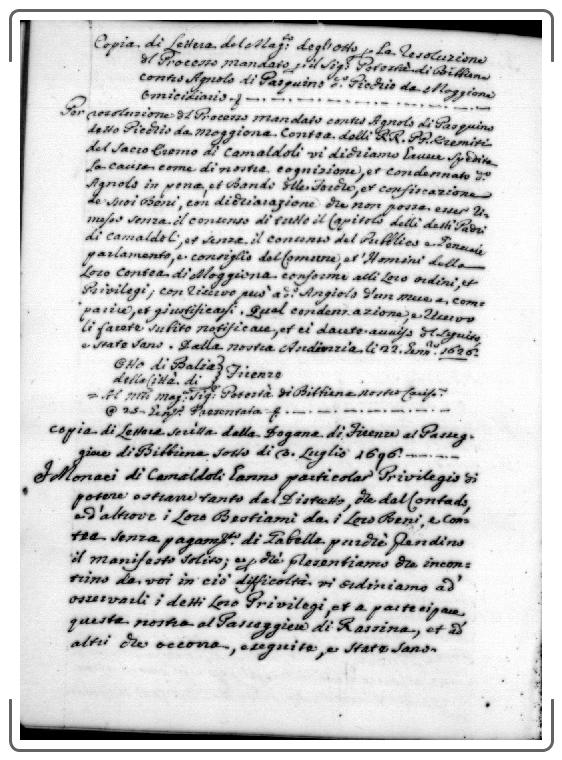 Copia di Lettera del Mag.to degl'Otto p la Resoluzione
del Processo mandato p il Sig.r Potestà di Bibbiena
contro Agnolo di Pasquino d.o Picchio da Moggiona
Omicidiario
Per resoluzione del Processo mandato contro Agnolo di Pasquino
detto Picchio da Moggiona Contea delli R.R. PP. Eremiti
del Sacro Eremo di Camaldoli vi dichiamo Essere spedita
la causa come di nostra cognizione, et condennato d.o
Agnolo in pena, et Bando delle forche, et confiscazione
de suoi Beni, con dichiarazione che non possa esser Ri-
messo senza il consenso di tutto il Capitolo delli detti Padri
di camaldoli, et senza il consenso del Pubblico e Generale
parlamento, e consiglio del Comune, et Homini della
Loro Contea di Moggiona conforme alli loro ordini, et
Privilegi, con riservo però a d.o Angiolo d'un mese a com-
parire, et giustificarsi. Qual condennazione e Riservo
li farete subito notificare, et ci darete avviso del seguito,
e state sano. Dalla nostra Audienza li 22. Genn.o 1626.
Otto di Balia
della Città di Firenze
Al molto mag.co Sig.r Potestà di Bibbiena nostro Cariss.o
@ 25. Genn.o Presentata
Copia di Lettera scritta dalla Dogana di Firenze al Passeg-
giere di Bibbiena sotto di 3. Luglio 1696.
I Monaci di Camaldoli Eanno particolar Privilegio di
potere estrarre tanto dal Distretto, che dal Contado,
ed'altrove i Loro Bestiami da i Loro Beni, e Con-
tea senza pagam.to di Tabella purchè prendino
il manifesto solito; e p chè presentiamo che incon-
trino da voi in ciò difficoltà vi ordiniamo ad'
osservarli i detti Loro Privilegi, et a partecipare
questa nostra al Passeggiere di Rassina, et ad'
altri che occorra, eseguite, e state sano.